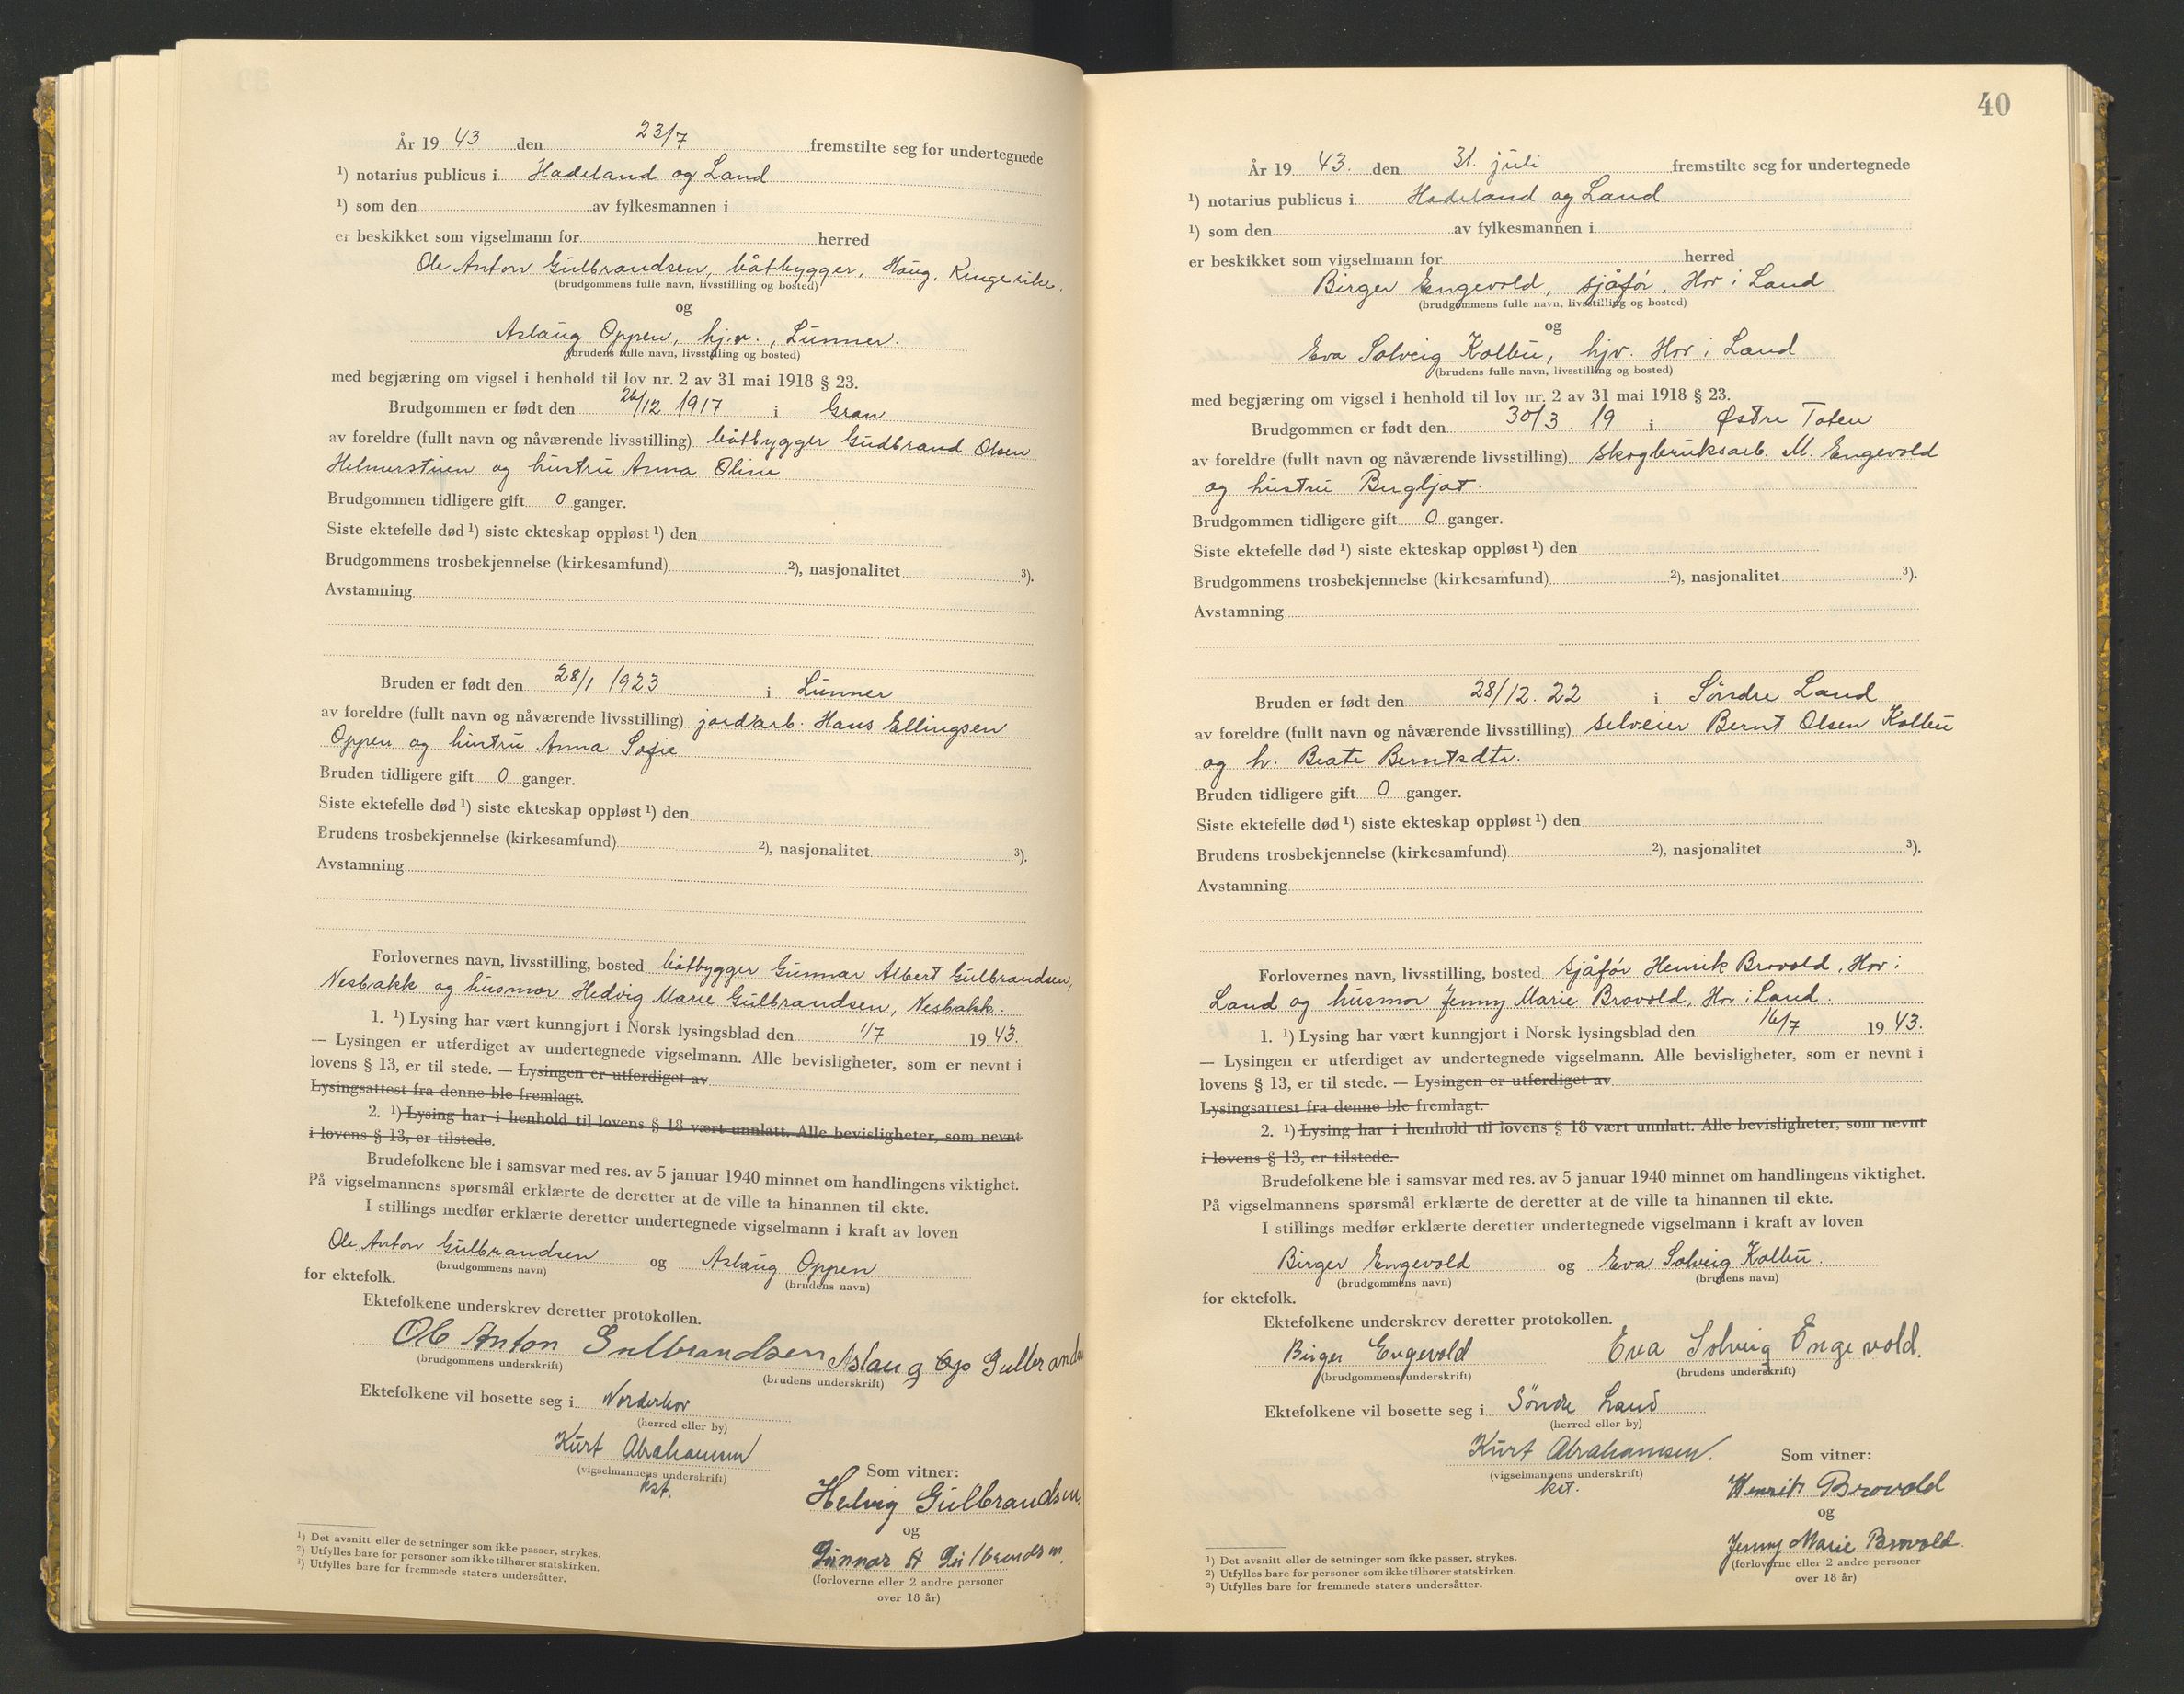 År 19 43 den 23/7 fremstilte seg for undertegnede
¹) notarius publicus i Hadeland og Land
¹) som den av fylkesmannen i
er beskikket som vigselmann for herred
Ole Anton Gulbrandsen, båtbygger, Haug, Ringerike.
(brudgommens fulle navn, livsstilling og bosted)
og
Aslaug Oppen, hj.v., Lunner.
(brudens fulle navn, livsstilling og bosted)
med begjæring om vigsel i henhold til lov nr. 2 av 31 mai 1918 § 23.
Brudgommen er født den 26/12 1917 i Gran
av foreldre (fullt navn og nåværende livsstilling) båtbygger Gudbrand Olsen
Helmerstuen og hustru Anna Oline
Brudgommen tidligere gift 0 ganger.
Siste ektefelle død ¹) siste ekteskap oppløst ¹) den
Brudgommens trosbekjennelse (kirkesamfund) ²), nasjonalitet ³).
Avstamning
Bruden er født den 28/1 1923 i Lunner
av foreldre (fullt navn og nåværende livsstilling) jordarb. Hans Ellingsen
Oppen og hustru Anna Sofie
Bruden tidligere gift 0 ganger.
Siste ektefelle død ¹) siste ekteskap oppløst ¹) den
Brudens trosbekjennelse (kirkesamfund) ²), nasjonalitet ³).
Avstamning
Forlovernes navn, livsstilling, bosted båtbygger Gunnar Albert Gulbrandsen,
Nesbakk og husmor Hedvig Marie Gulbrandsen, Nesbakk.
1. ¹) Lysing har vært kunngjort i Norsk lysingsblad den 1/7 19 43.
— Lysingen er utferdiget av undertegnede vigselmann. Alle bevisligheter, som er nevnt i
lovens § 13, er til stede. — Lysingen er utferdiget av
Lysingsattest fra denne ble fremlagt.
2. ¹) Lysing har i henhold til lovens § 18 vært unnlatt. Alle bevisligheter, som nevnt
i lovens § 13, er tilstede.
Brudefolkene ble i samsvar med res. av 5 januar 1940 minnet om handlingens viktighet.
På vigselmannens spørsmål erklærte de deretter at de ville ta hinannen til ekte.
I stillings medfør erklærte deretter undertegnede vigselmann i kraft av loven
Ole Anton Gulbrandsen og Aslaug Oppen
(brudgommens navn) (brudens navn)
for ektefolk.
Ektefolkene underskrev deretter protokollen.
Ole Anton Gulbrandsen Aslaug Gulbrands
(brudgommens underskrift) (brudens underskrift)
Ektefolkene vil bosette seg i Norderhov
(herred eller by)
Kurt Abrahamsen
(vigselmannens underskrift)
kst.
Som vitner:
Hedvig Gulbrandsen.
og
Gunnar A Gulbrandsen.
(forloverne eller 2 andre personer
over 18 år)
¹) Det avsnitt eller de setninger som ikke passer, strykes.
²) Utfylles bare for personer som ikke tilhører statskirken.
³) Utfylles bare for fremmede staters undersåtter.
40
År 19 43. den 31. juli fremstilte seg for undertegnede
¹) notarius publicus i Hadeland og Land
¹) som den av fylkesmannen i
er beskikket som vigselmann for herred
Birger Engevold, sjåfør, Hov i Land
(brudgommens fulle navn, livsstilling og bosted)
og
Eva Solveig Kolbu, hjv. Hov i Land
(brudens fulle navn, livsstilling og bosted)
med begjæring om vigsel i henhold til lov nr. 2 av 31 mai 1918 § 23.
Brudgommen er født den 30/3. 19 i Østre Toten
av foreldre (fullt navn og nåværende livsstilling) skogbruksarb. M. Engevold
og hustru Bergljot.
Brudgommen tidligere gift 0 ganger.
Siste ektefelle død ¹) siste ekteskap oppløst ¹) den
Brudgommens trosbekjennelse (kirkesamfund) ²), nasjonalitet ³).
Avstamning
Bruden er født den 28/12. 22 i Søndre Land
av foreldre (fullt navn og nåværende livsstilling) selveier Bernt Olsen Kolbu
og h. Beate Berntsdtr.
Bruden tidligere gift 0 ganger.
Siste ektefelle død ¹) siste ekteskap oppløst ¹) den
Brudens trosbekjennelse (kirkesamfund) ²), nasjonalitet ³).
Avstamning
Forlovernes navn, livsstilling, bosted sjåfør Henrik Brovold, Hov i
Land og husmor Jenny Marie Brovold, Hov i Land.
1. ¹) Lysing har vært kunngjort i Norsk lysingsblad den 16/7 19 43.
— Lysingen er utferdiget av undertegnede vigselmann. Alle bevisligheter, som er nevnt i
lovens § 13, er til stede. — Lysingen er utferdiget av
Lysingsattest fra denne ble fremlagt.
2. ¹) Lysing har i henhold til lovens § 18 vært unnlatt. Alle bevisligheter, som nevnt
i lovens § 13, er tilstede.
Brudefolkene ble i samsvar med res. av 5 januar 1940 minnet om handlingens viktighet.
På vigselmannens spørsmål erklærte de deretter at de ville ta hinannen til ekte.
I stillings medfør erklærte deretter undertegnede vigselmann i kraft av loven
Birger Engevold og Eva Solveig Kolbu.
(brudgommens navn) (brudens navn)
for ektefolk.
Ektefolkene underskrev deretter protokollen.
Birger Engevold Eva Solveig Engevold.
(brudgommens underskrift) (brudens underskrift)
Ektefolkene vil bosette seg i Søndre Land
(herred eller by)
Kurt Abrahamsen.
(vigselmannens underskrift)
kst.
Som vitner:
Henrik Brovold
og
Jenny Marie Brovold.
(forloverne eller 2 andre personer
over 18 år)
¹) Det avsnitt eller de setninger som ikke passer, strykes.
²) Utfylles bare for personer som ikke tilhører statskirken.
³) Utfylles bare for fremmede staters undersåtter.